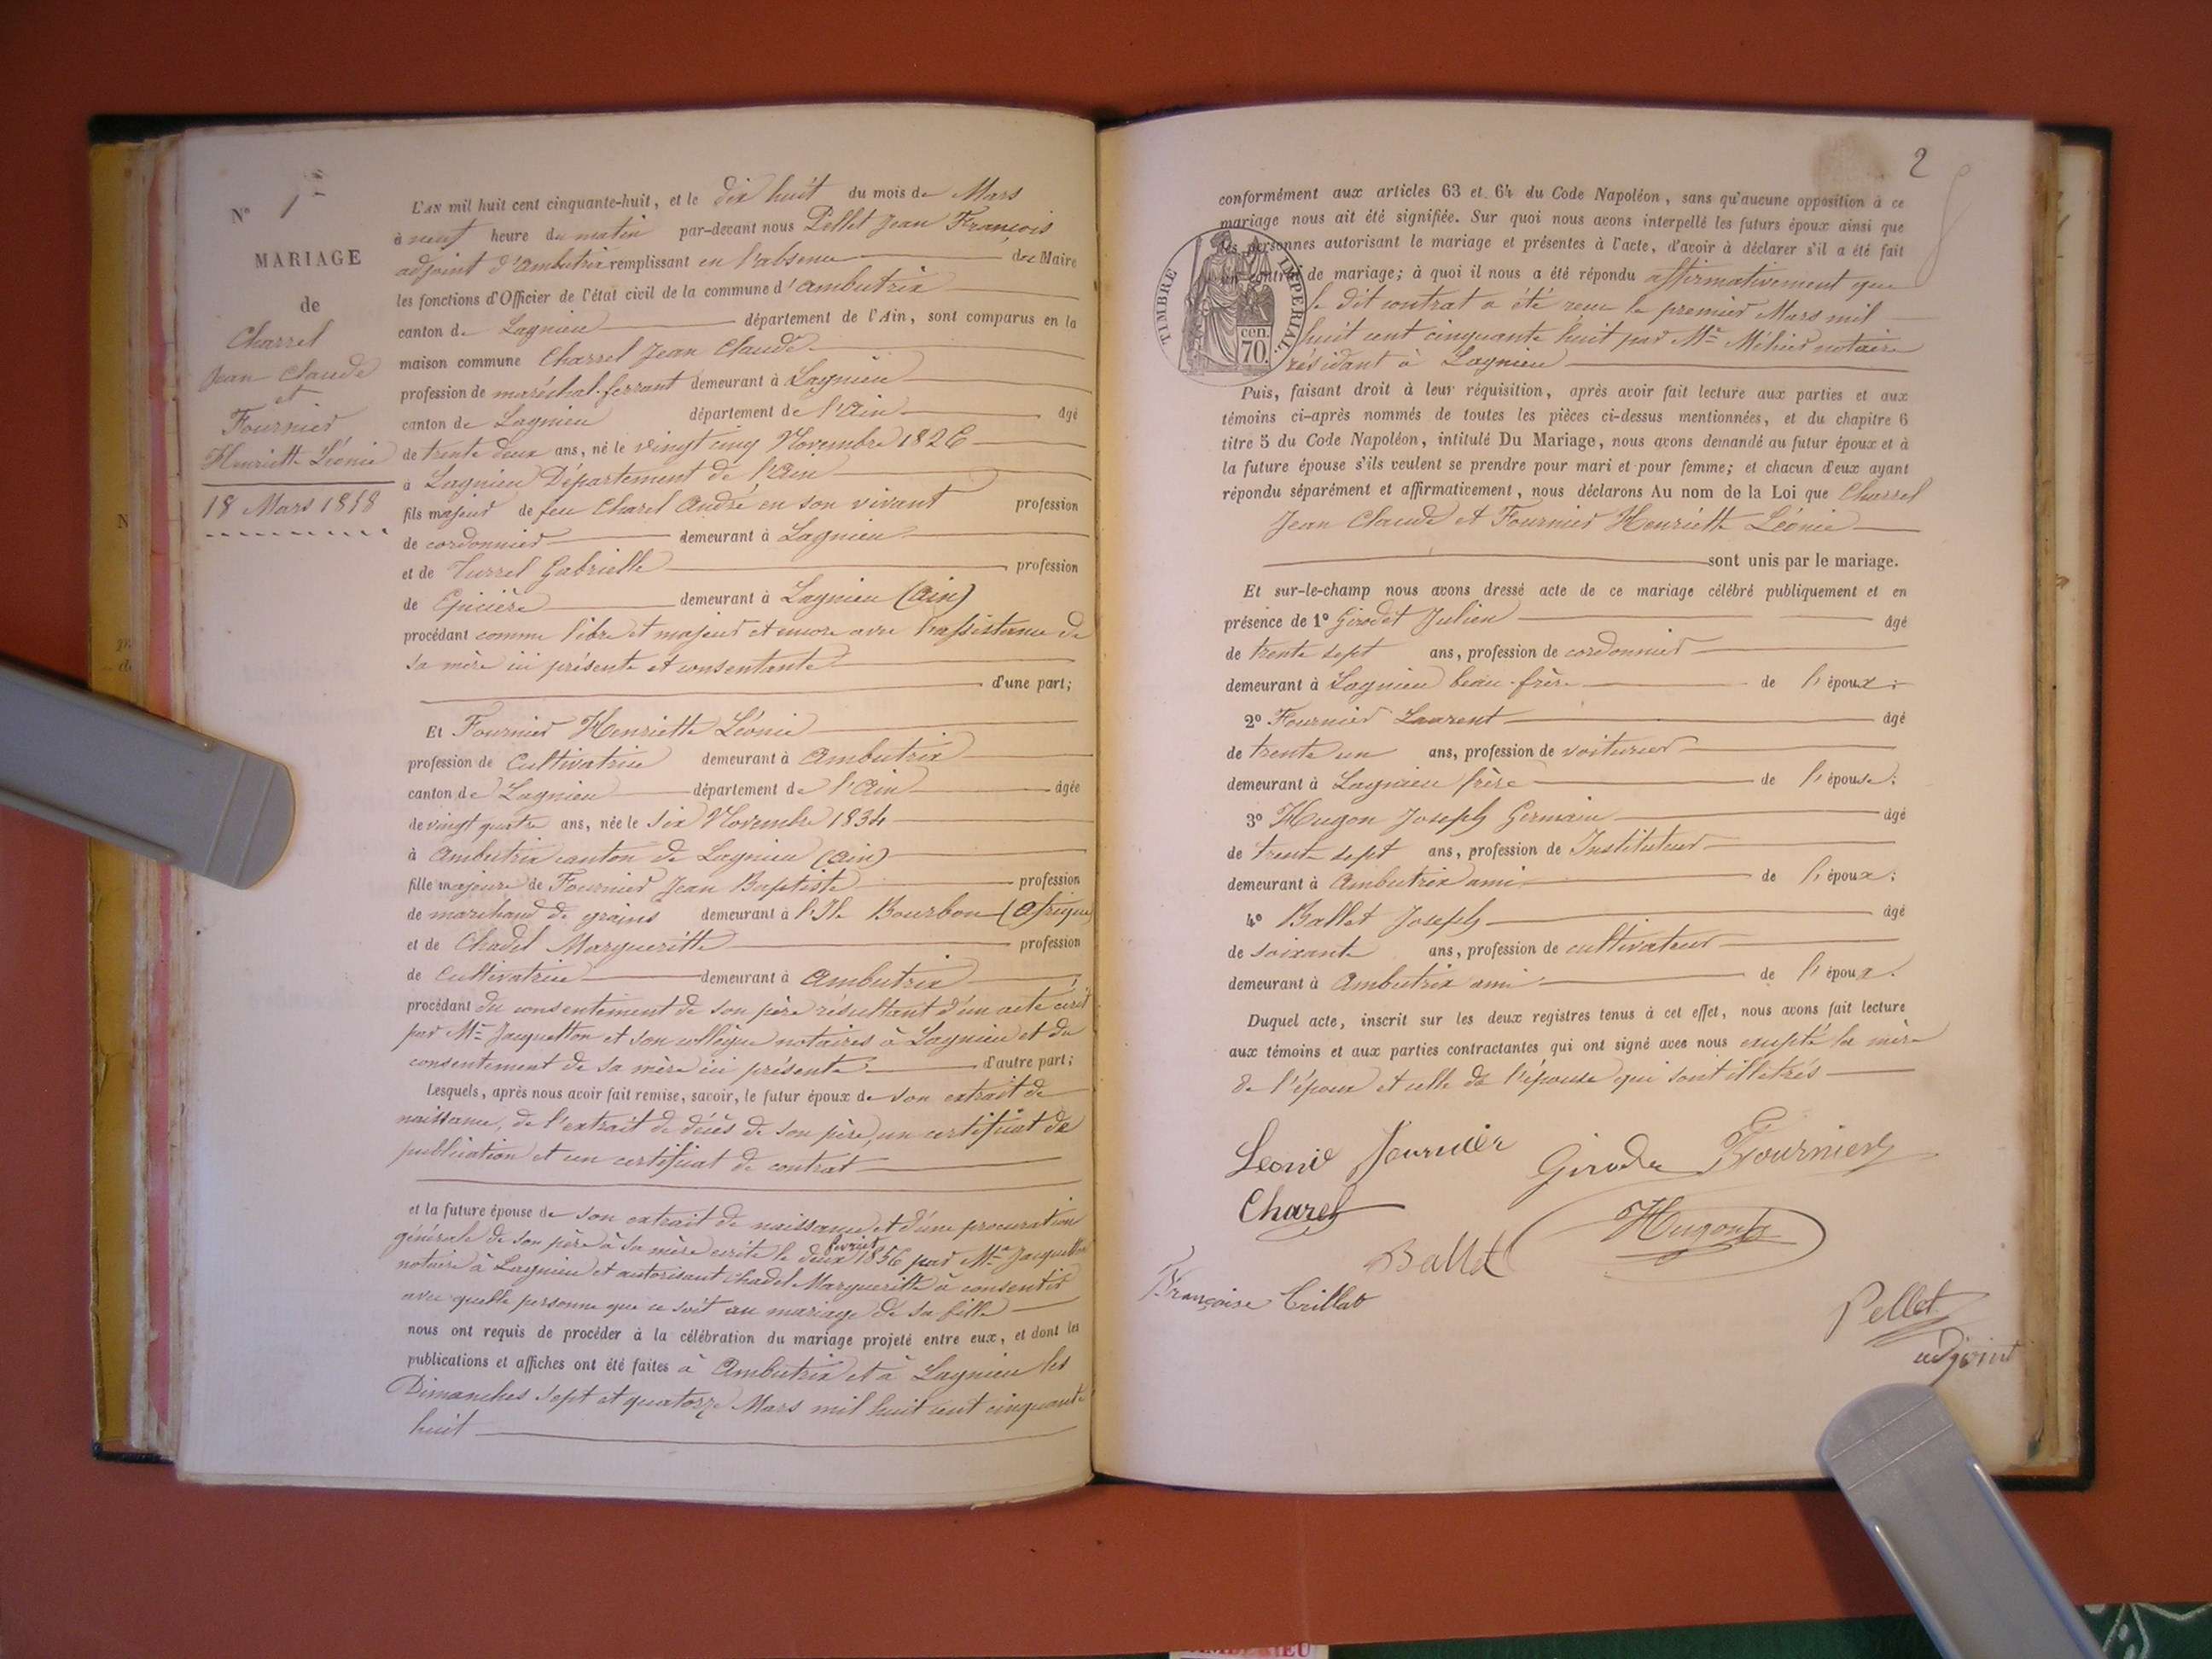 N° 1er
MARIAGE
de
Charrel
Jean Claude
et
Fournier
Henriette Léonie
18 Mars 1858
L'AN mil huit cent cinquante-huit, et le dix huit du mois de Mars
à neuf heure du matin par-devant nous Pellet Jean François
adjoint d'Ambutrix remplissant en l'absence du Maire
les fonctions d'Officier de l'état civil de la commune d'Ambutrix
canton de Lagnieu département de l'Ain, sont comparus en la
maison commune Charrel Jean Claude
profession de maréchal-ferrant demeurant à Lagnieu
canton de Lagnieu département de l'Ain âgé
de trente deux ans, né le vingt cinq Novembre 1826
à Lagnieu Département de l'Ain
fils majeur de feu Charel André en son vivant profession
de cordonnier demeurant à Lagnieu
et de Turrel Gabrielle profession
de Epicière demeurant à Lagnieu (Ain)
procédant comme libre et majeur et encore avec l'assistance de
sa mère ici présente et consentante
d'une part;
Et Fournier Henriette Léonie
profession de Cultivatrice demeurant à Ambutrix
canton de Lagnieu département de l'Ain âgée
de vingt quatre ans, née le six Novembre 1834
à Ambutrix canton de Lagnieu (Ain)
fille majeure de Fournier Jean Baptiste profession
de marchand de grains demeurant à l'Ile Bourbon (Afrique)
et de Chadel Margueritte profession
de Cultivatrice demeurant à Ambutrix
procédant du consentement de son père résultant d'un acte écrit
par Me Jacquetton et son collègue notaires à Lagnieu et du
consentement de sa mère ici présente d'autre part;
Lesquels, après nous avoir fait remise, savoir, le futur époux de son extrait de
naissance, de l'extrait de décès de son père, un certificat de
publication et un certificat de contrat
et la future épouse de son extrait de naissance et d'une procuration
générale de son père à sa mère écrite le deux février 1856 par Me Jacquetton
notaire à Lagnieu et autorisant Chadel Margueritte à consentir
avec quelle personne que ce soit au mariage de sa fille
nous ont requis de procéder à la célébration du mariage projeté entre eux, et dont les
publications et affiches ont été faites à Ambutrix et à Lagnieu les
Dimanches sept et quatorze Mars mil huit cent cinquante
huit
2
conformément aux articles 63 et 64 du Code Napoléon, sans qu'aucune opposition à ce
mariage nous ait été signifiée. Sur quoi nous avons interpellé les futurs époux ainsi que
les personnes autorisant le mariage et présentes à l'acte, d'avoir à déclarer s'il a été fait
un contrat de mariage; à quoi il nous a été répondu affirmativement que
le dit contrat a été reçu le premier Mars mil
huit cent cinquante huit par Me Méhier notaire
résidant à Lagnieu
TIMBRE IMPERIAL
cen.
70.
Puis, faisant droit à leur réquisition, après avoir fait lecture aux parties et aux
témoins ci-après nommés de toutes les pièces ci-dessus mentionnées, et du chapitre 6
titre 5 du Code Napoléon, intitulé Du Mariage, nous avons demandé au futur époux et à
la future épouse s'ils veulent se prendre pour mari et pour femme; et chacun d'eux ayant
répondu séparément et affirmativement, nous déclarons Au nom de la Loi que Charrel
Jean Claude et Fournier Henriette Léonie
sont unis par le mariage.
Et sur-le-champ nous avons dressé acte de ce mariage célébré publiquement et en
présence de 1° Girodet Julien âgé
de trente sept ans, profession de cordonnier
demeurant à Lagnieu beau-frère de l'époux;
2° Fournier Laurent âgé
de trente un ans, profession de voiturier
demeurant à Lagnieu frère de l'épouse;
3° Hugon Joseph Germain âgé
de trente sept ans, profession de Instituteur
demeurant à Ambutrix ami de l'époux;
4° Ballet Joseph âgé
de soixante ans, profession de cultivateur
demeurant à Ambutrix ami de l'époux.
Duquel acte, inscrit sur les deux registres tenus à cet effet, nous avons fait lecture
aux témoins et aux parties contractantes qui ont signé avec nous excepté la mère
de l'époux et celle de l'épouse qui sont illetrés
Leonie Fournier Girodet Fournier
Charel Hugon
Ballet
Françoise Trillat
Pellet
adjoint